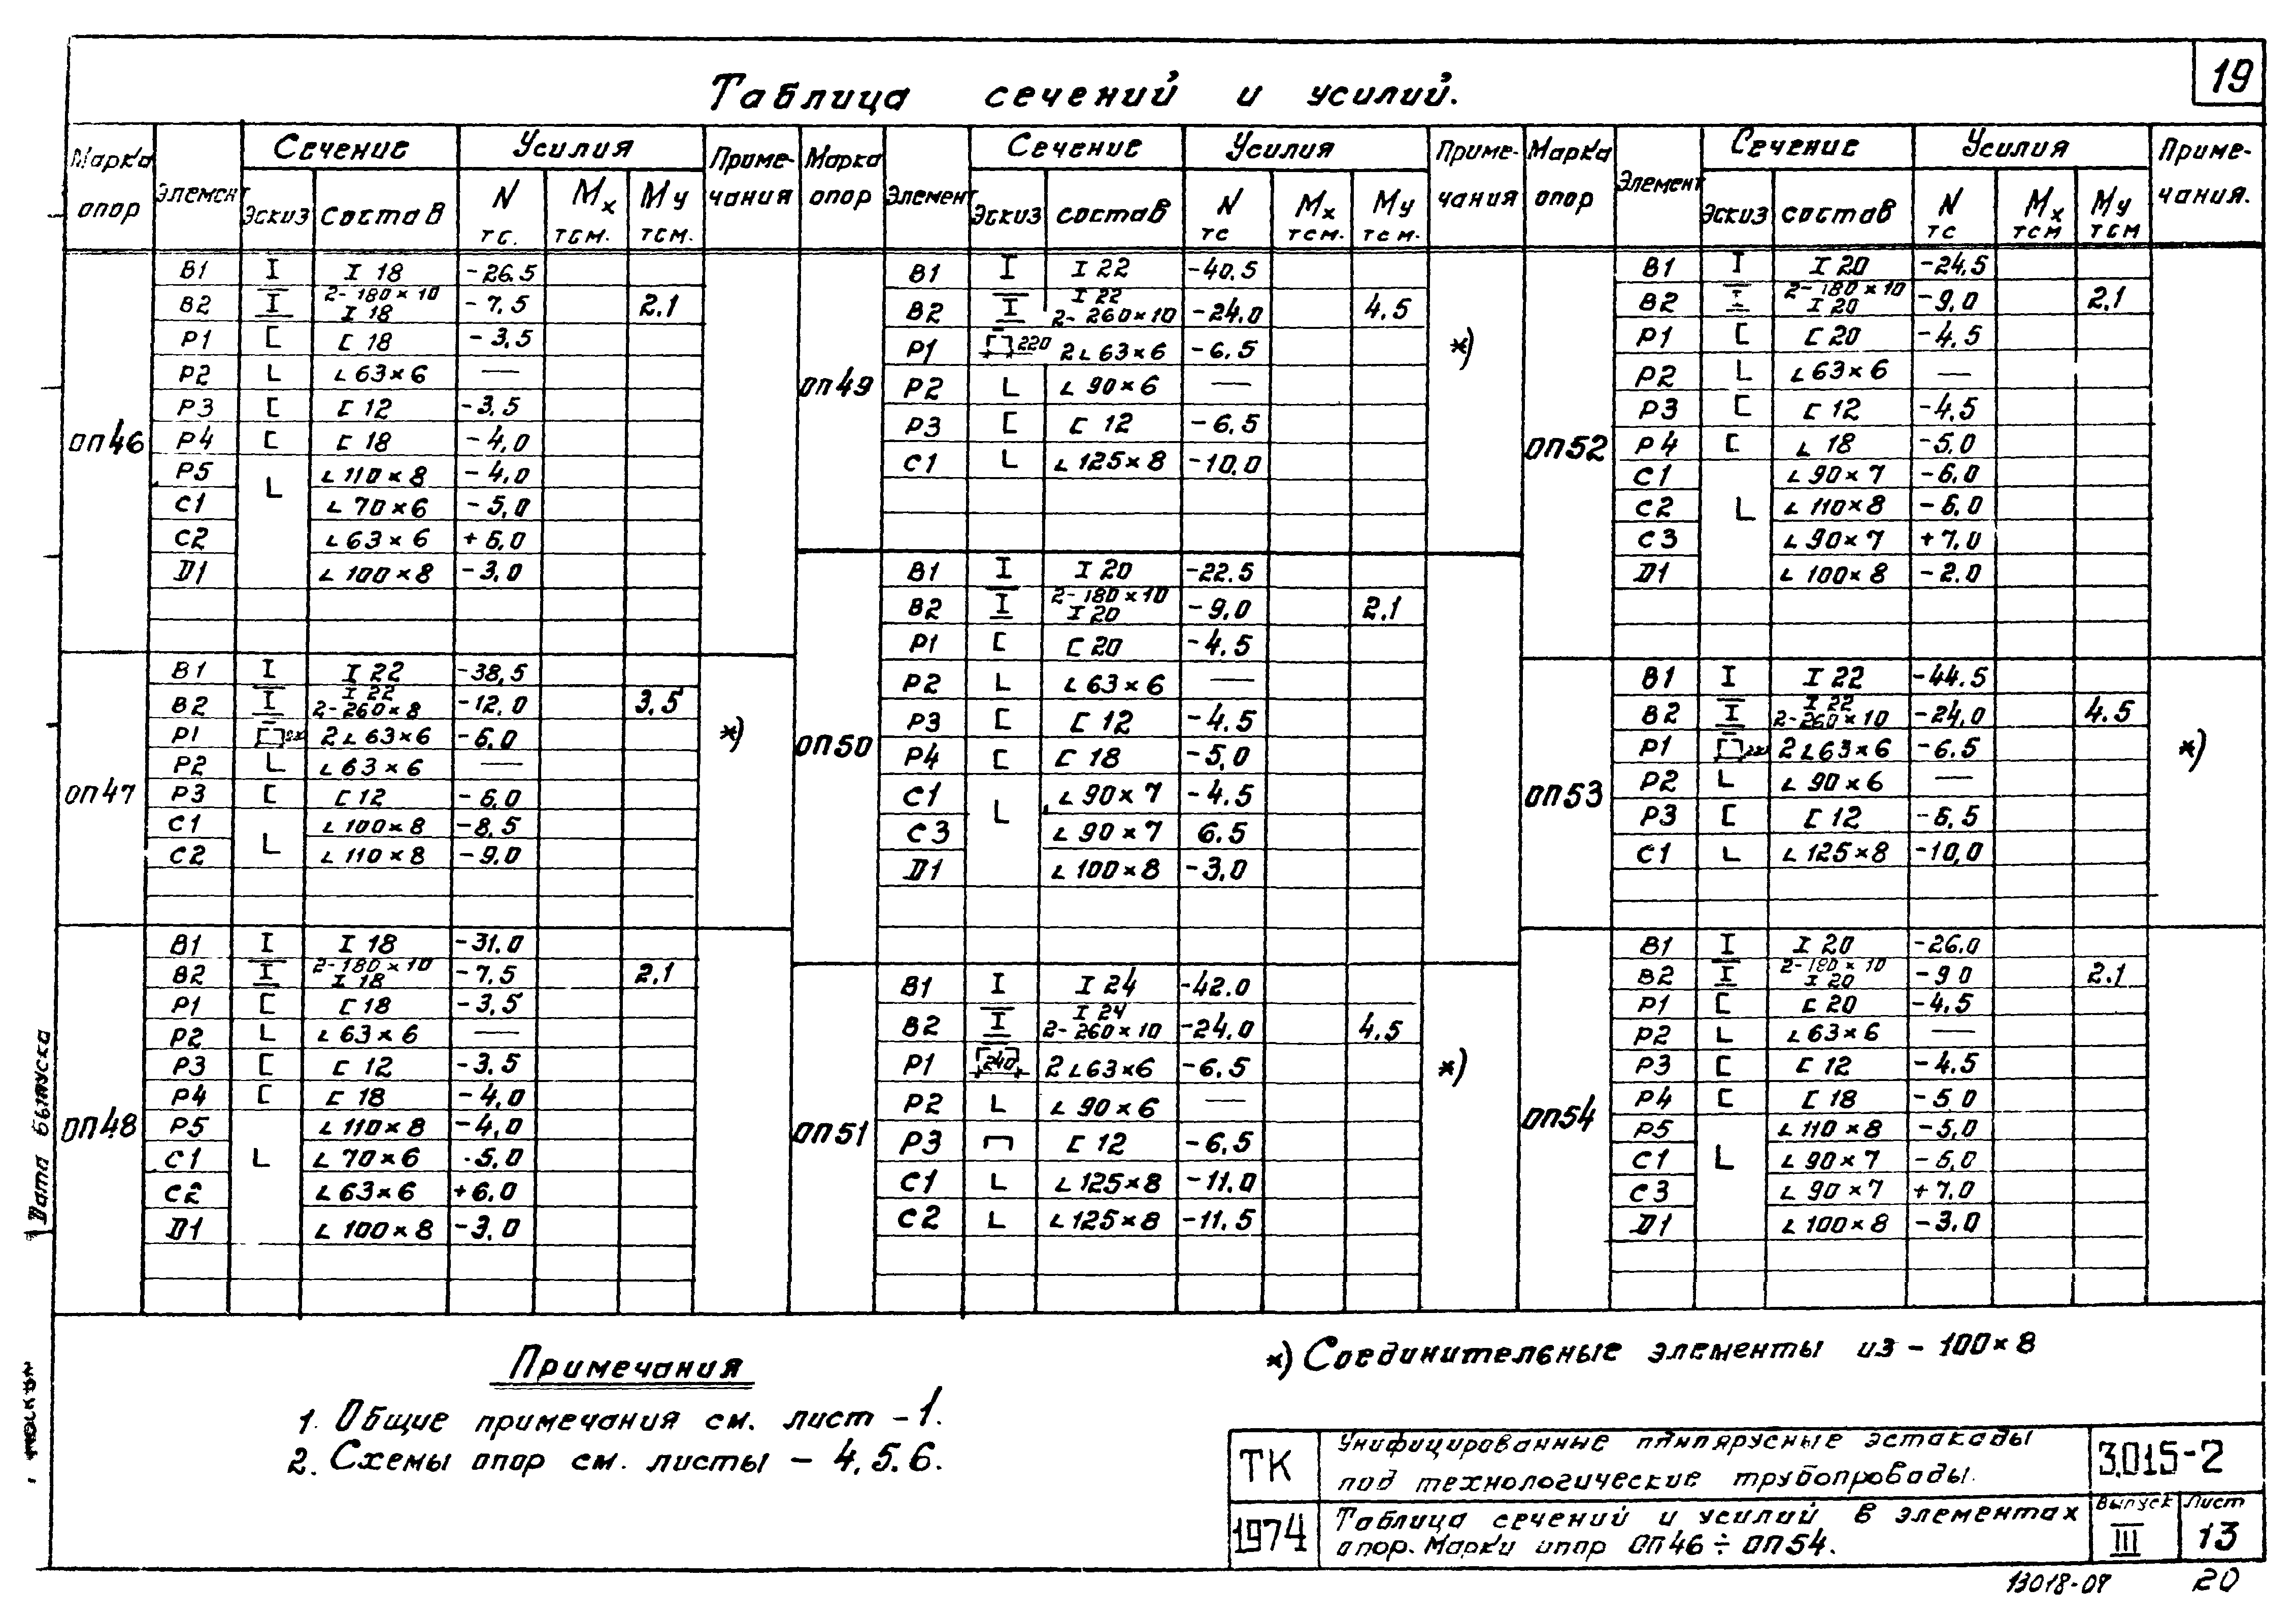 19
Таблица сечений и усилий.
Марка опор | Элемент | Сечение | Усилия | Приме-чания
Эскиз | состав | N тс. | Mx тсм. | My тсм.
ОП46
В1 I I 18 -26.5
В2 I 2-180×10 I 18 -7.5 2.1
Р1 [ [ 18 -3.5
Р2 L L 63×6 —
Р3 [ [ 12 -3.5
Р4 [ [ 18 -4.0
Р5 L L 110×8 -4.0
С1 L 70×6 -5.0
С2 L 63×6 +6.0
D1 L 100×8 -3.0
ОП47 *)
В1 I I 22 -38,5
В2 I I 22 2-260×8 -12.0 3.5
Р1 2L 63×6 -6.0
Р2 L L 63×6 —
Р3 [ [ 12 -6.0
С1 L L 100×8 -8.5
С2 L 110×8 -9.0
ОП48
В1 I I 18 -31.0
В2 I 2-180×10 I 18 -7.5 2.1
Р1 [ [ 18 -3.5
Р2 L L 63×6 —
Р3 [ [ 12 -3.5
Р4 [ [ 18 -4.0
Р5 L 110×8 -4.0
С1 L L 70×6 -5.0
С2 L 63×6 +6.0
D1 L 100×8 -3.0
Марка опор | Элемент | Сечение | Усилия | Приме-чания
Эскиз | состав | N тс | Mx тсм. | My тсм.
ОП49 *)
В1 I I 22 -40.5
В2 I I 22 2-260×10 -24.0 4.5
Р1 220 2L 63×6 -6.5
Р2 L L 90×6 —
Р3 [ [ 12 -6.5
С1 L L 125×8 -10.0
ОП50
В1 I I 20 -22.5
В2 I 2-180×10 I 20 -9.0 2.1
Р1 [ [ 20 -4.5
Р2 L L 63×6 —
Р3 [ [ 12 -4.5
Р4 [ [ 18 -5,0
С1 L L 90×7 -4.5
С3 L 90×7 6.5
D1 L 100×8 -3.0
ОП51 *)
В1 I I 24 -42.0
В2 I I 24 2-260×10 -24.0 4.5
Р1 240 2L 63×6 -6.5
Р2 L L 90×6 —
Р3 [ 12 -6,5
С1 L L 125×8 -11.0
С2 L L 125×8 -11.5
Марка опор | Элемент | Сечение | Усилия | Приме-чания.
Эскиз | состав | N тс | Mx тсм | My тсм
ОП52
В1 I I 20 -24.5
В2 I 2-180×10 I 20 -9,0 2.1
Р1 [ [ 20 -4.5
Р2 L L 63×6 —
Р3 [ [ 12 -4.5
Р4 [ L 18 -5.0
С1 L 90×7 -6.0
С2 L L 110×8 -6.0
С3 L 90×7 +7.0
D1 L 100×8 -2.0
ОП53 *)
В1 I I 22 -44.5
В2 I I 22 2-260×10 -24.0 4.5
Р1 2L 63×6 -6.5
Р2 L L 90×6 —
Р3 [ [ 12 -6,5
С1 L L 125×8 -10,0
ОП54
В1 I I 20 -26.0
В2 I 2-180×10 I 20 -9 0 2.1
Р1 [ [ 20 -4.5
Р2 L L 63×6 —
Р3 [ [ 12 -4.5
Р4 [ [ 18 -5 0
Р5 L 110×8 -5.0
С1 L L 90×7 -6,0
С3 L 90×7 +7.0
D1 L 100×8 -3.0
Дата выпуска
Примечания
1. Общие примечания см. лист -1.
2. Схемы опор см. листы – 4, 5. 6.
*) Соединительные элементы из – 100×8
ТК
Унифицированные одноярусные эстакады
под технологические трубопроводы.
3.015-2
1974
Таблица сечений и усилий в элементах
опор. Марки опор ОП46 ÷ ОП54.
Выпуск III
Лист 13
13018-09
20